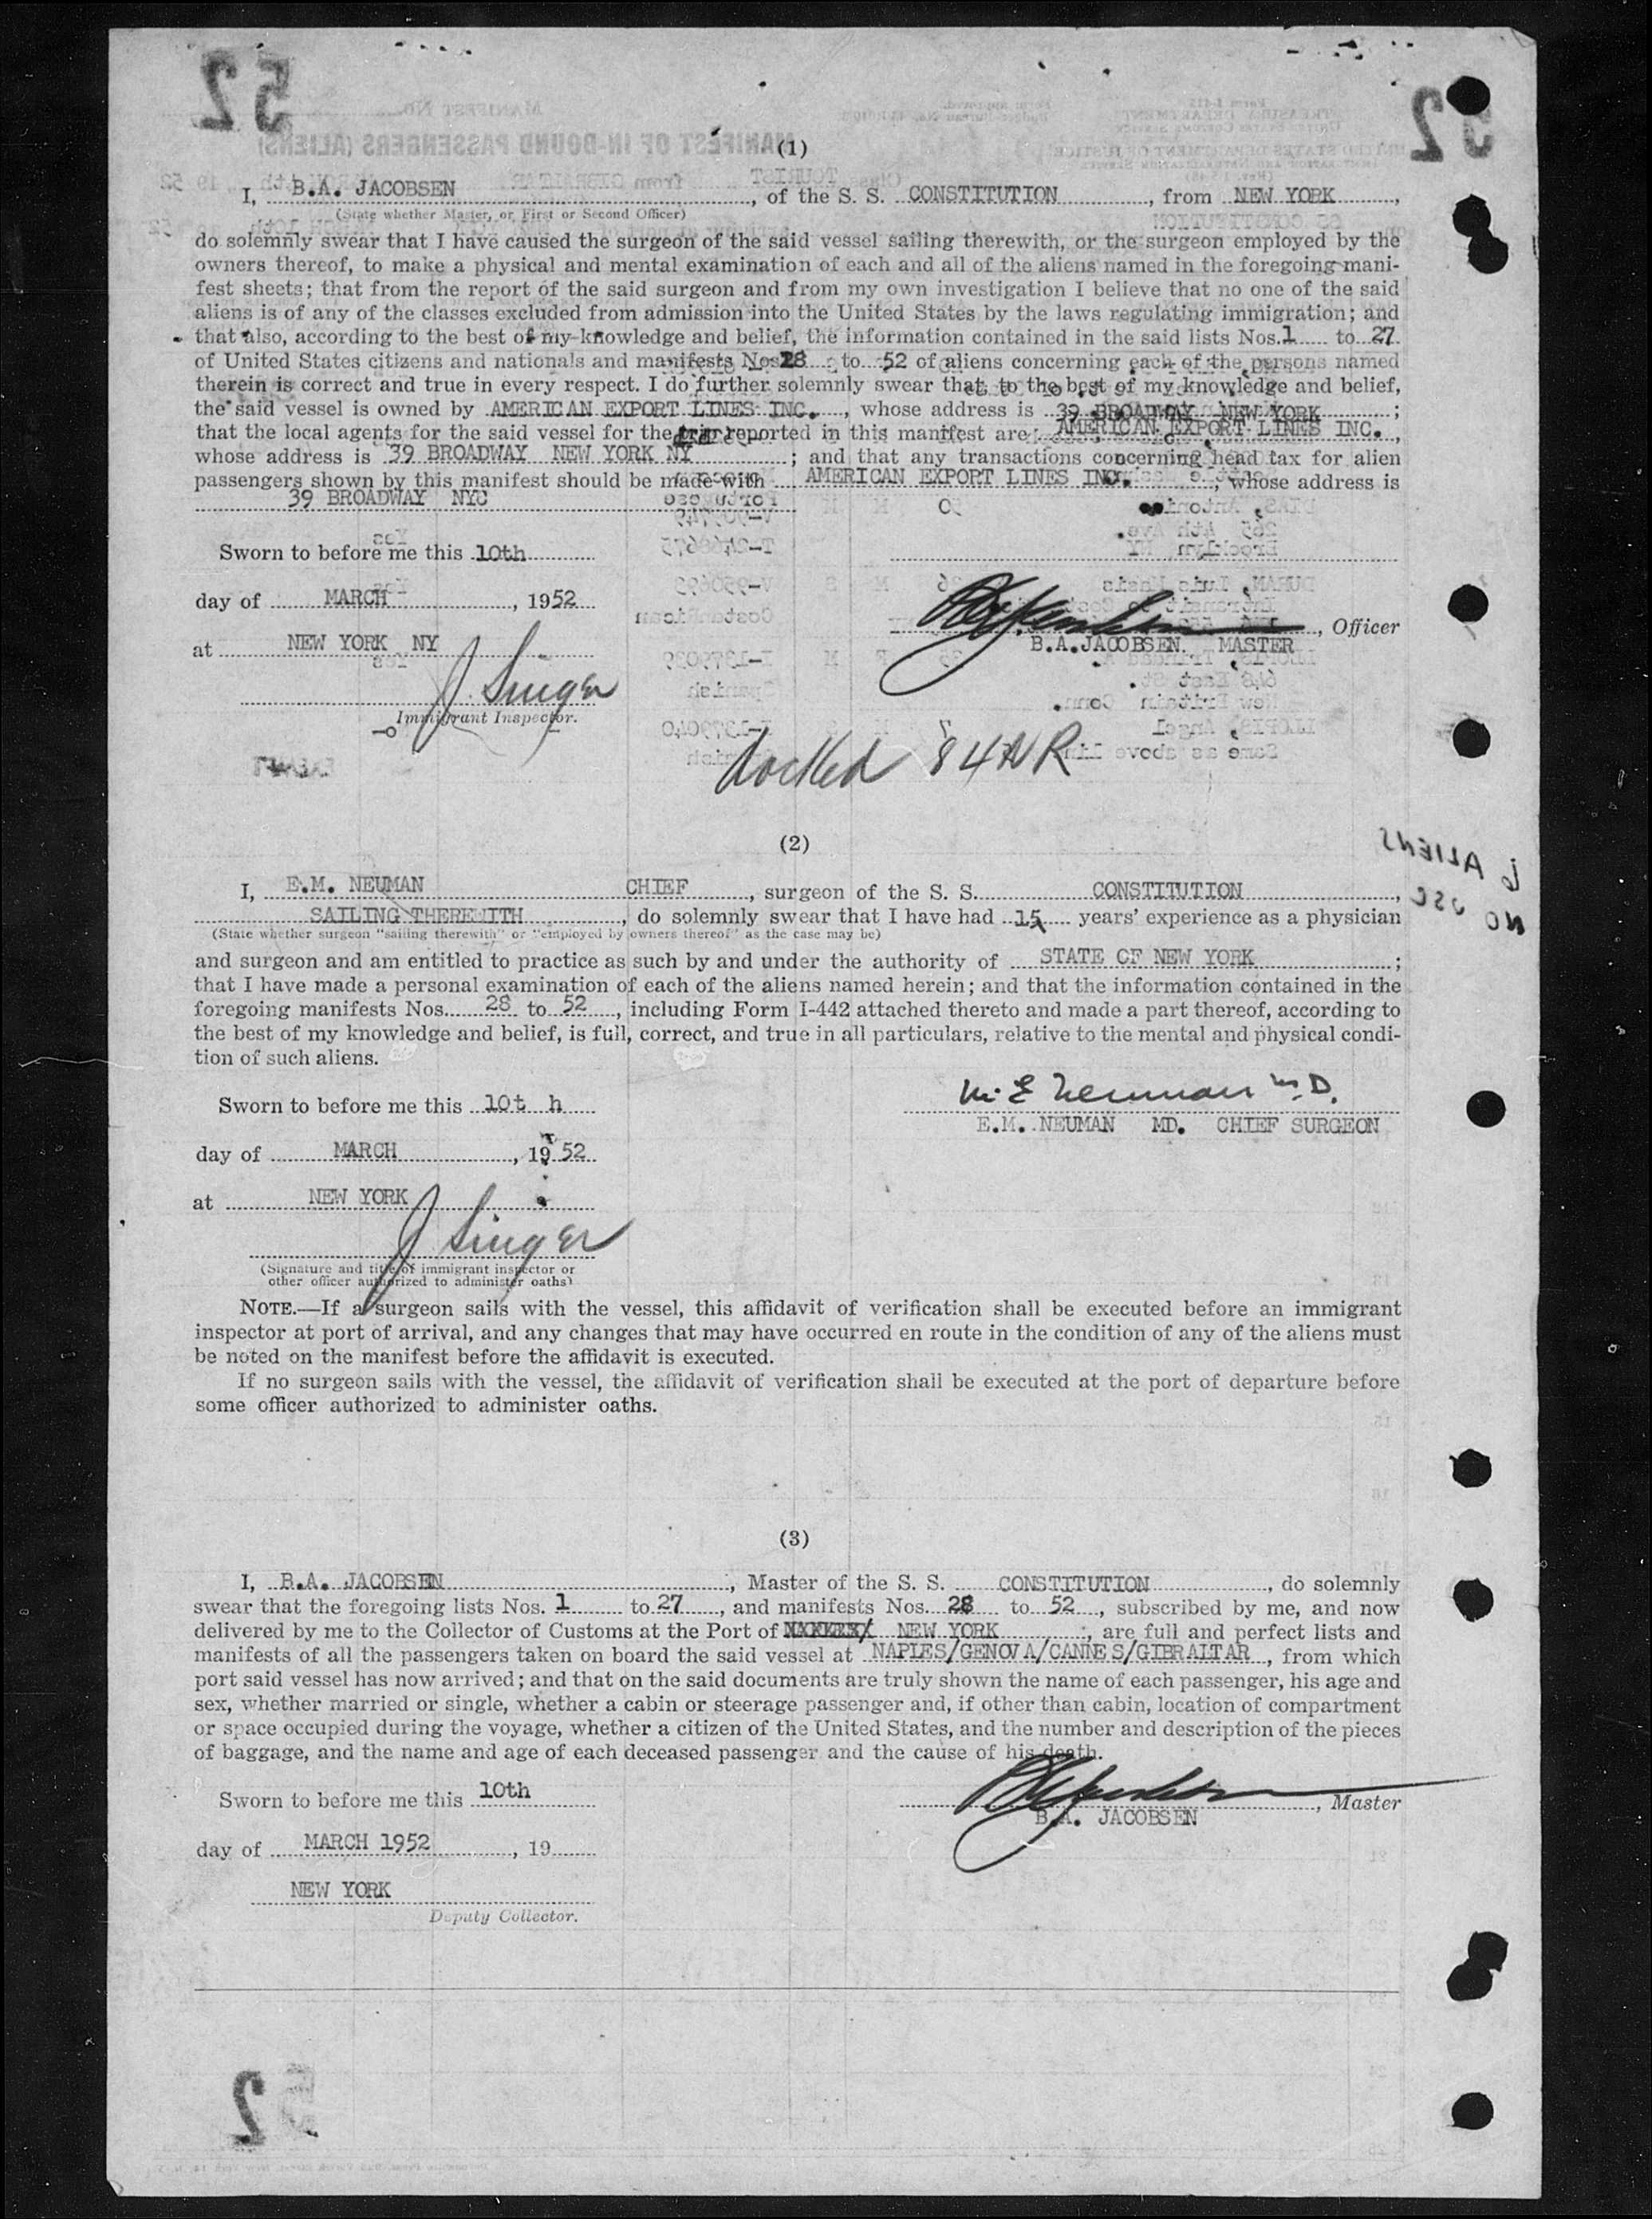 (1)
I, B.A. JACOBSEN, of the S. S. CONSTITUTION, from NEW YORK,
(State whether Master, or First or Second Officer)
do solemnly swear that I have caused the surgeon of the said vessel sailing therewith, or the surgeon employed by the
owners thereof, to make a physical and mental examination of each and all of the aliens named in the foregoing mani-
fest sheets; that from the report of the said surgeon and from my own investigation I believe that no one of the said
aliens is of any of the classes excluded from admission into the United States by the laws regulating immigration; and
that also, according to the best of my knowledge and belief, the information contained in the said lists Nos. 1 to 27
of United States citizens and nationals and manifests Nos 28 to 52 of aliens concerning each of the persons named
therein is correct and true in every respect. I do further solemnly swear that to the best of my knowledge and belief,
the said vessel is owned by AMERICAN EXPORT LINES INC., whose address is 39 BROADWAY NEW YORK;
that the local agents for the said vessel for the reported in this manifest are AMERICAN EXPORT LINES INC.,
whose address is 39 BROADWAY NEW YORK NY; and that any transactions concerning head tax for alien
passengers shown by this manifest should be made with AMERICAN EXPORT LINES INC., whose address is
39 BROADWAY NYC
Sworn to before me this 10th
day of MARCH, 1952
, Officer
B.A.JACOBSEN MASTER
at NEW YORK NY
J Singer
Immigrant Inspector.
docked 84 NR
(2)
6 ALIENS
NO USC
I, E.M. NEUMAN CHIEF, surgeon of the S. S. CONSTITUTION,
SAILING THEREWITH, do solemnly swear that I have had 15 years' experience as a physician
(State whether surgeon "sailing therewith" or "employed by owners thereof" as the case may be)
and surgeon and am entitled to practice as such by and under the authority of STATE OF NEW YORK;
that I have made a personal examination of each of the aliens named herein; and that the information contained in the
foregoing manifests Nos. 28 to 52, including Form I-442 attached thereto and made a part thereof, according to
the best of my knowledge and belief, is full, correct, and true in all particulars, relative to the mental and physical condi-
tion of such aliens.
Sworn to before me this 10t h
M. E Neuman M.D.
E.M. NEUMAN MD. CHIEF SURGEON
day of MARCH, 19 52
at NEW YORK
J Singer
(Signature and title of immigrant inspector or
other officer authorized to administer oaths)
NOTE.—If a surgeon sails with the vessel, this affidavit of verification shall be executed before an immigrant
inspector at port of arrival, and any changes that may have occurred en route in the condition of any of the aliens must
be noted on the manifest before the affidavit is executed.
If no surgeon sails with the vessel, the affidavit of verification shall be executed at the port of departure before
some officer authorized to administer oaths.
(3)
I, B.A. JACOBSEN, Master of the S. S. CONSTITUTION, do solemnly
swear that the foregoing lists Nos. 1 to 27, and manifests Nos. 28 to 52, subscribed by me, and now
delivered by me to the Collector of Customs at the Port of NEW YORK, are full and perfect lists and
manifests of all the passengers taken on board the said vessel at NAPLES/GENOVA/CANNES/GIBRALTAR, from which
port said vessel has now arrived; and that on the said documents are truly shown the name of each passenger, his age and
sex, whether married or single, whether a cabin or steerage passenger and, if other than cabin, location of compartment
or space occupied during the voyage, whether a citizen of the United States, and the number and description of the pieces
of baggage, and the name and age of each deceased passenger and the cause of his death.
Sworn to before me this 10th
, Master
B.A. JACOBSEN
day of MARCH 1952, 19
NEW YORK
Deputy Collector.
52